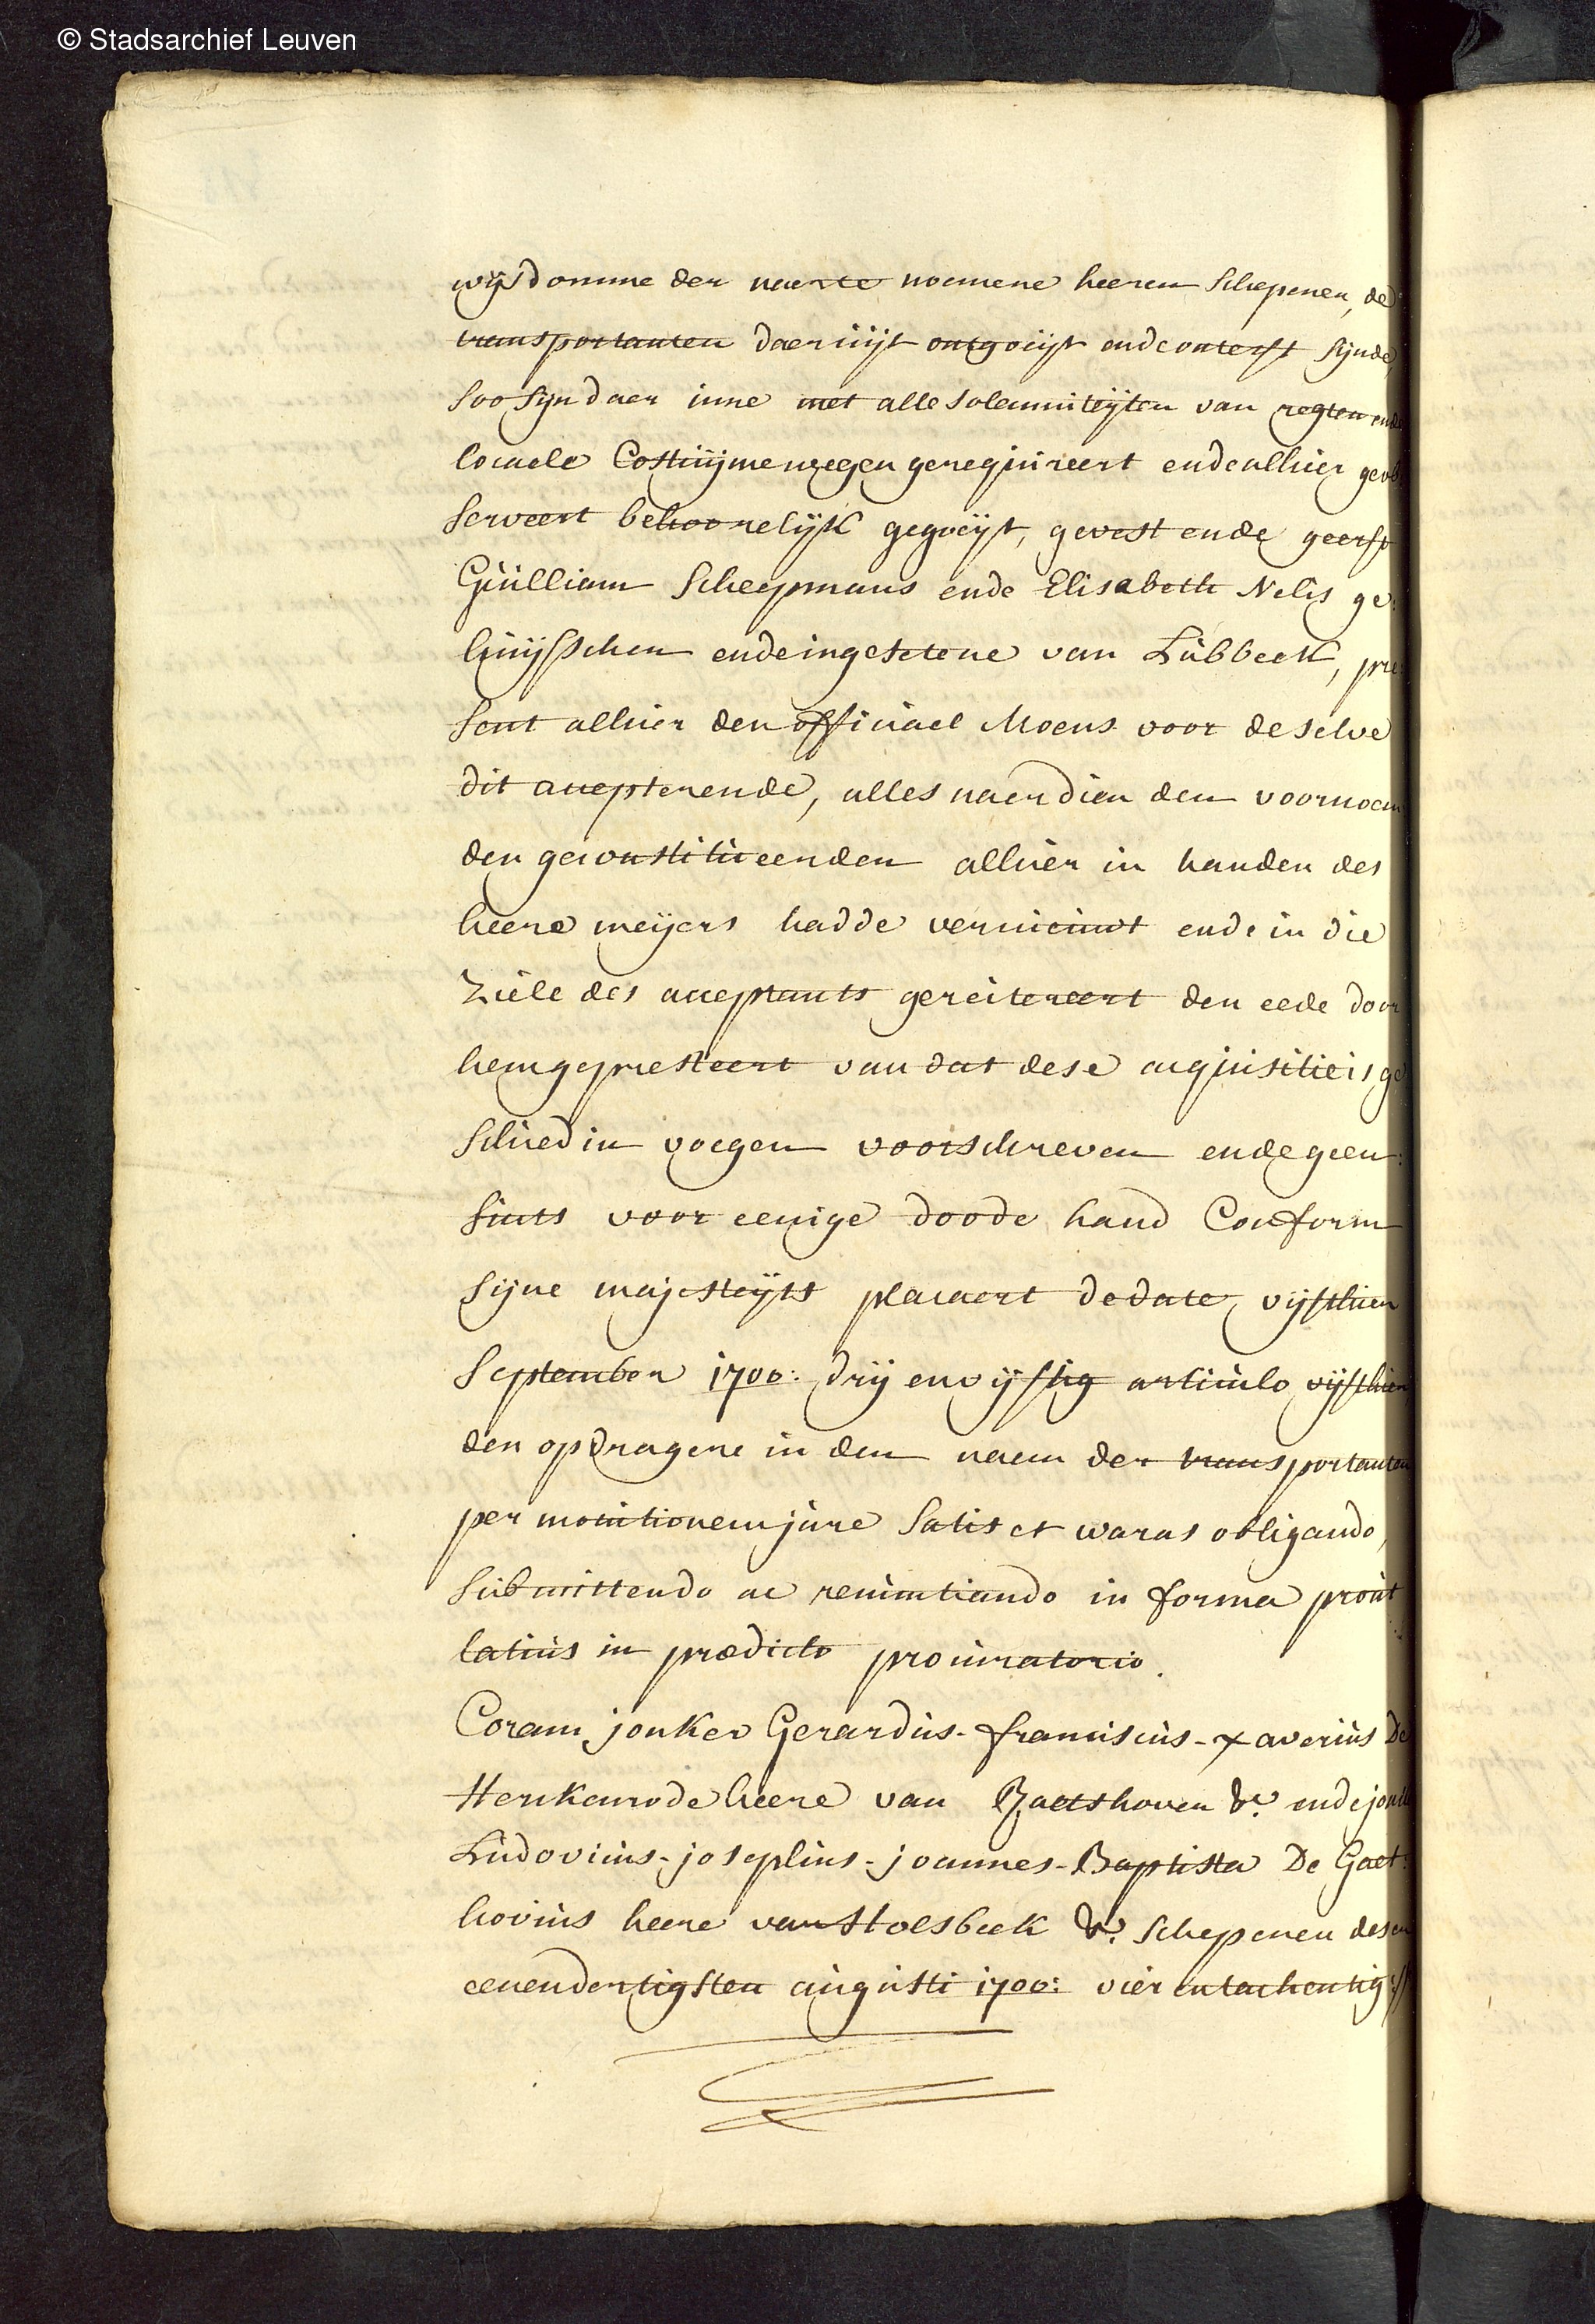 © Stadsarchief Leuven
wijsdomme der naerte noemene heeren Schepenen, de
transportanten daer uijt ontgoeijt ende onterft sijnde,
soo sijn daer inne met alle solemniteijten van regten ende
locaele Costuijme wegen gerequireert ende alhier geob:
serveert behoorelijk gegoeijt, gevest ende geerft
Guilliam Scheypmans ende Elisabeth Nelis ge:
huijsschen ende ingesetene van Lubbeek, pre:
sent alhier den officiael Moens voor de selve
dit accepterende, alles naer dien den voornoem
den geconstitueerden alhier in handen des
heere meijers hadde vernieuwt ende in die
Ziele des acceptants gereitereert den eede door
hem gepresteert van dat dese acquisitie is ge
schied in voegen voorschreven ende geen:
sints voor eenige doode hand Conform
sijne majesteijts placaert de date vijfthien
September 1700: drij en vijftig articulo vijfthien,
den opdragere in den naem der transportanten
per monitionem jure satis et waras obligando,
submittendo ac renuntiando in forma prout
latius in prædicto procuratorio.
Coram jonker Gerardus-franciscus-xaverius De
Herckenrode heere van Baetshoven &c. ende jonker
Ludovicus-josephus-joannes-Baptista De Gaet:
hovius heere van Stoesbeek &c. Schepenen desen
eenendertigsten augusti 1700: vier en tachentig://